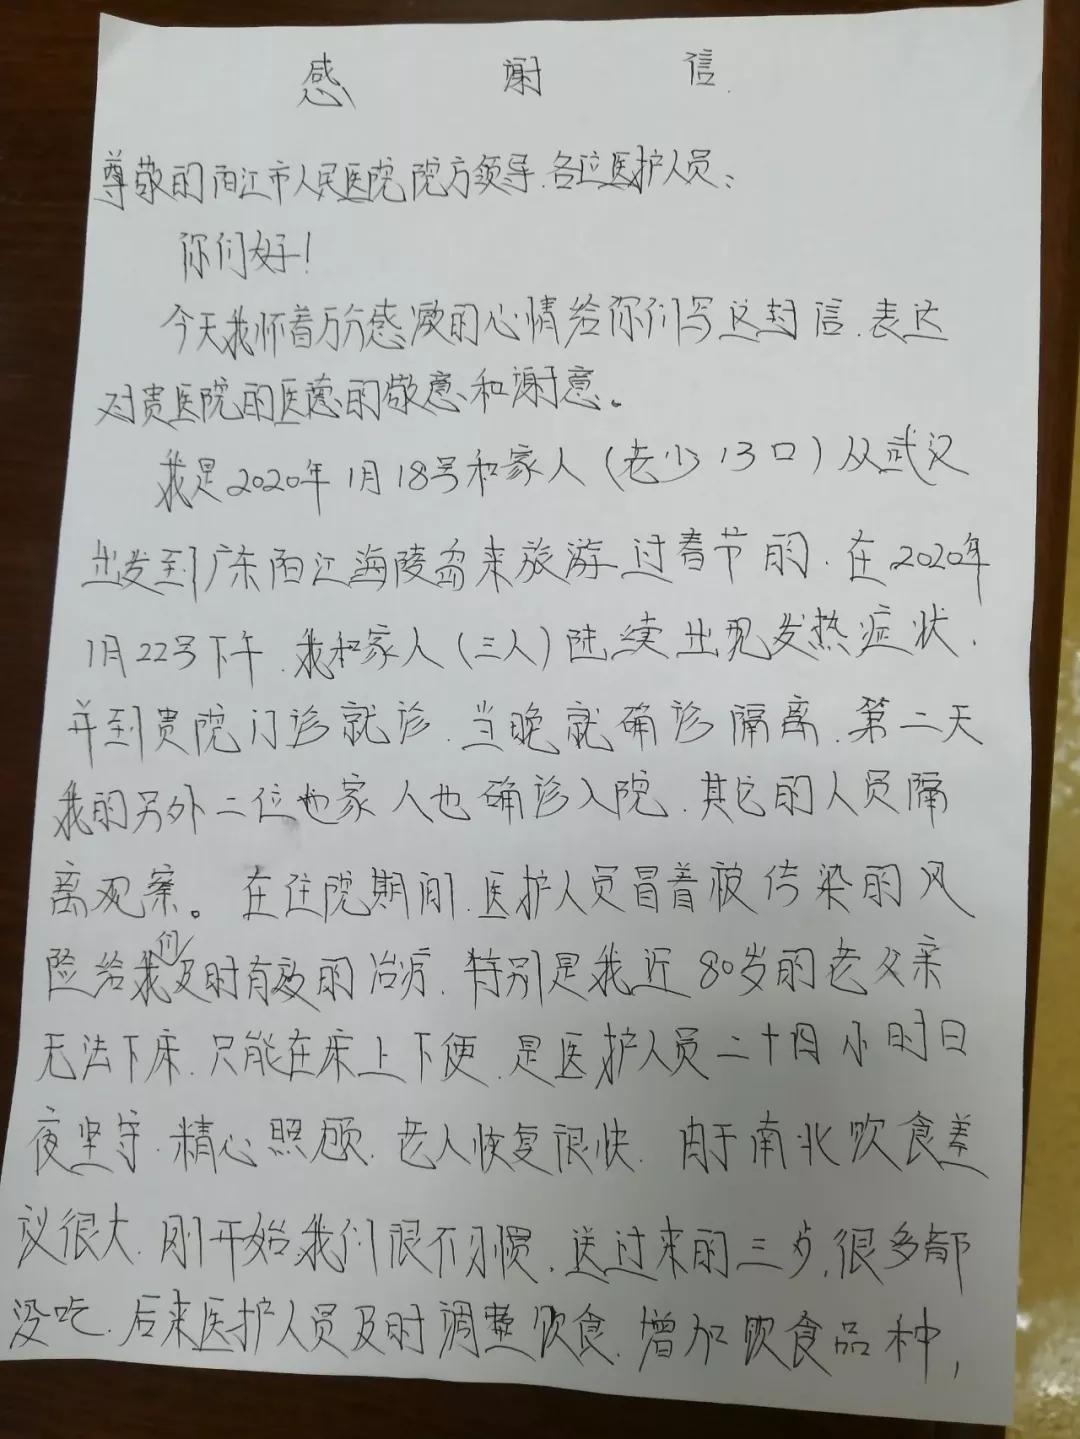 感 谢 信
尊敬的阳江市人民医院院方领导.各位医护人员:
你们好!
今天我怀着万分感激的心情给你们写这封信.表达
对贵医院的医德的敬意和谢意。
我是2020年1月18号和家人(老少13口)从武汉
出发到广东阳江海陵岛来旅游过春节的.在2020年
1月22号下午.我和家人(三人)陆续出现发热症状.
并到贵院门诊就诊.当晚就确诊隔离.第二天
我的另外二位也家人也确诊入院.其它的人员隔
离观察。在住院期间.医护人员冒着被传染的风
险给我们及时有效的治疗.特别是我近80岁的老父亲
无法下床.只能在床上下便.是医护人员二十四小时日
夜坚守.精心照顾.老人恢复很快.由于南北饮食差
议很大.刚开始.我们很不习惯.送过来的三歺.很多都
没吃.后来医护人员及时调整饮食.增加饮食品种,